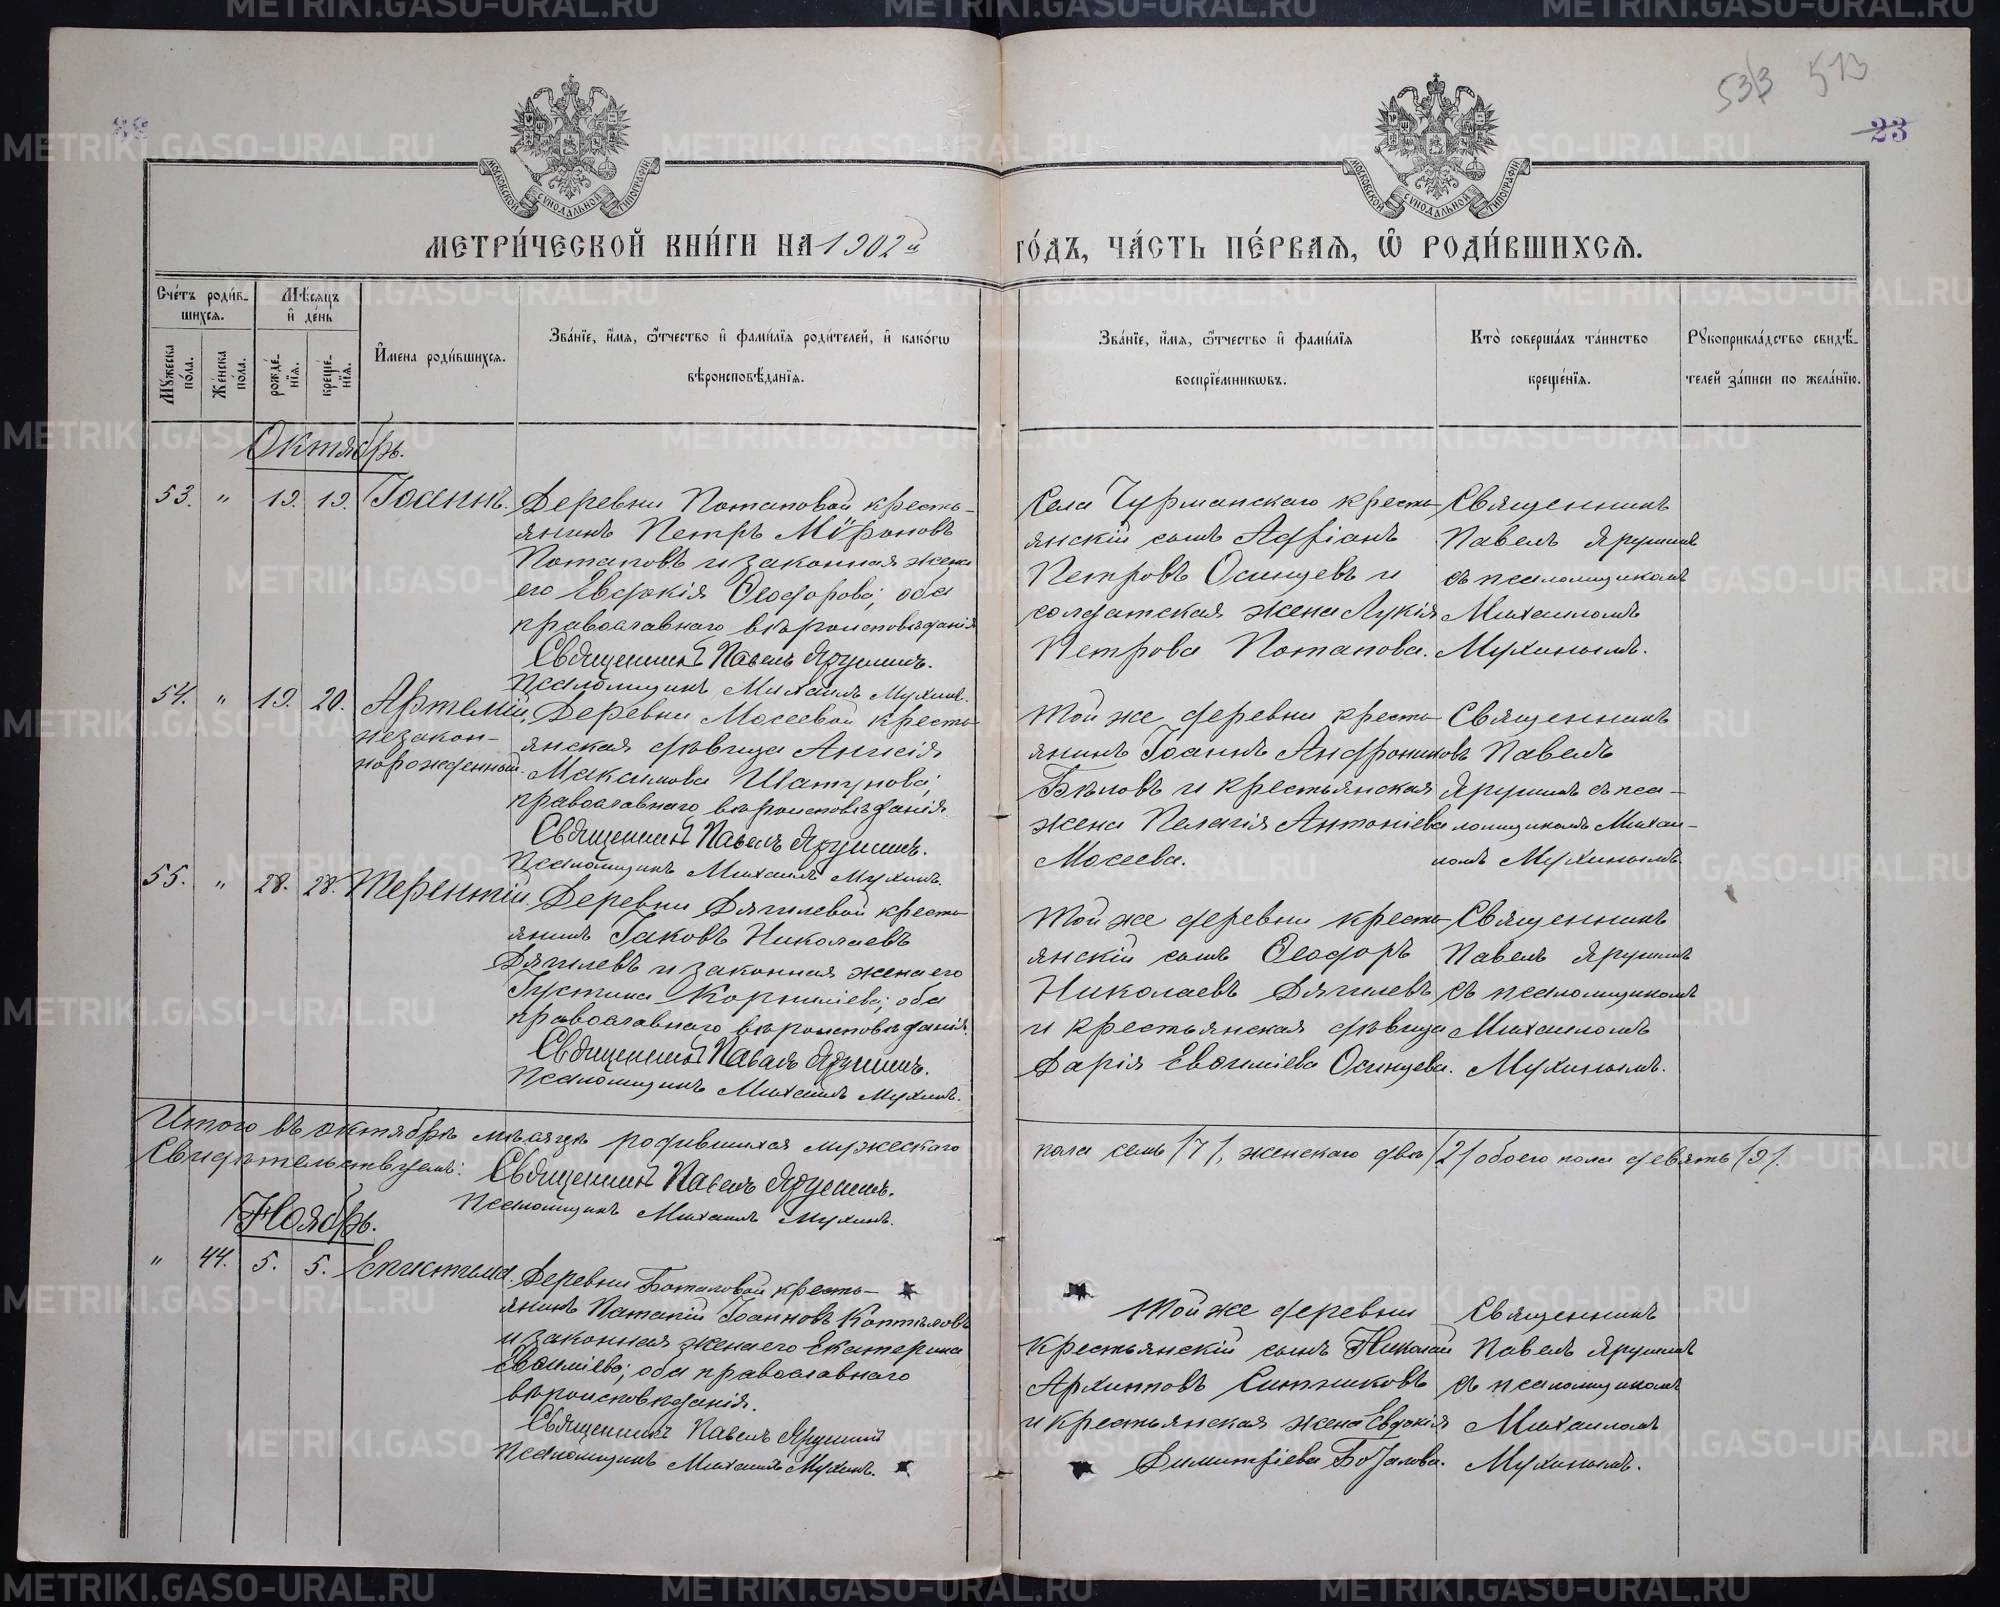 533 513
23
МОСКОВСКОЙ СУНОДАЛЬНОЙ ТИПОГРАФІИ
МОСКОВСКОЙ СУНОДАЛЬНОЙ ТИПОГРАФІИ
МЕТРИ́ЧЕСКОЙ КНИ́ГИ НА 1902й ГО́ДЪ, ЧА́СТЬ ПЕ́РВАЯ, Ѡ РОДИ́ВШИХСЯ.
Счетъ родив-
шихся.
Мужеска пола.
Женска пола.
Мѣсяцъ
и день
рожде-
нія.
креще-
нія.
Имена родившихся.
Званіе, имя, ѿчество и фамилія родителей, и какогѡ
вѣроисповѣданія.
Званіе, имя, ѿчество и фамилія
воспріемникѡвъ.
Кто совершалъ таинство
крещенія.
Рукоприкладство свидѣ-
телей записи по желанію.
Октябрь.
53. " 19. 19. Іоаннъ.
Деревни Потаповой кресть-
янинъ Петръ Мѵроновъ
Потаповъ и законная жена
его Евдокія Ѳеодорова; оба
православнаго вѣроисповѣданія
Священникъ Павелъ Ярушинъ.
Псаломщикъ Михаилъ Мухинъ.
Села Чурманскаго кресть-
янскій сынъ Адріанъ
Петровъ Осинцевъ и
солдатская жена Лукія
Петрова Потапова.
Священникъ
Павелъ Ярушинъ
съ псаломщикомъ
Михаиломъ
Мухинымъ.
54. " 19. 20. Артемій,
незакон-
норожденный.
Деревни Мосеевой кресть-
янская дѣвица Анисія
Максимова Шатунова;
православнаго вѣроисповѣданія
Священникъ Павелъ Ярушинъ.
Псаломщикъ Михаилъ Мухинъ.
Той же деревни кресть-
янинъ Іоаннъ Андрониковъ
Бѣловъ и крестьянская
жена Пелагія Антоніева
Мосеева.
Священникъ
Павелъ
Ярушинъ съ пса-
ломщикомъ Михаи-
ломъ Мухинымъ.
55. " 28. 28. Терентій.
Деревни Дягилевой кресть-
янинъ Іаковъ Николаевъ
Дягилевъ и законная жена его
Іустина Корниліева; оба
православнаго вѣроисповѣданія.
Священникъ Павелъ Ярушинъ.
Псаломщикъ Михаилъ Мухинъ.
Той же деревни кресть-
янскій сынъ Ѳеодоръ
Николаевъ Дягилевъ
и крестьянская дѣвица
Дарія Евѳиміева Осинцева.
Священникъ
Павелъ Ярушинъ
съ псаломщикомъ
Михаиломъ
Мухинымъ.
Итого въ октябрѣ мѣсяцѣ родившихся мужескаго пола семь /7/, женскаго два /2/ обоего пола девять /9/.
Свидѣтельствуемъ: Священникъ Павелъ Ярушинъ.
Псаломщикъ Михаилъ Мухинъ.
Ноябрь.
" 44. 5. 5. Епистима.
Деревни Боталовой кресть-
янинъ Патапій Іоанновъ Коптѣловъ
и законная жена его Екатерина
Евѳиміева; оба православнаго
вѣроисповѣданія.
Священникъ Павелъ Ярушинъ
Псаломщикъ Михаилъ Мухинъ.
Той же деревни
крестьянскій сынъ Николай
Архиповъ Ситниковъ
и крестьянская жена Евдокія
Димитріева Боталова.
Священникъ
Павелъ Ярушинъ
съ псаломщикомъ
Михаиломъ
Мухинымъ.
METRIKI.GASO-URAL.RU